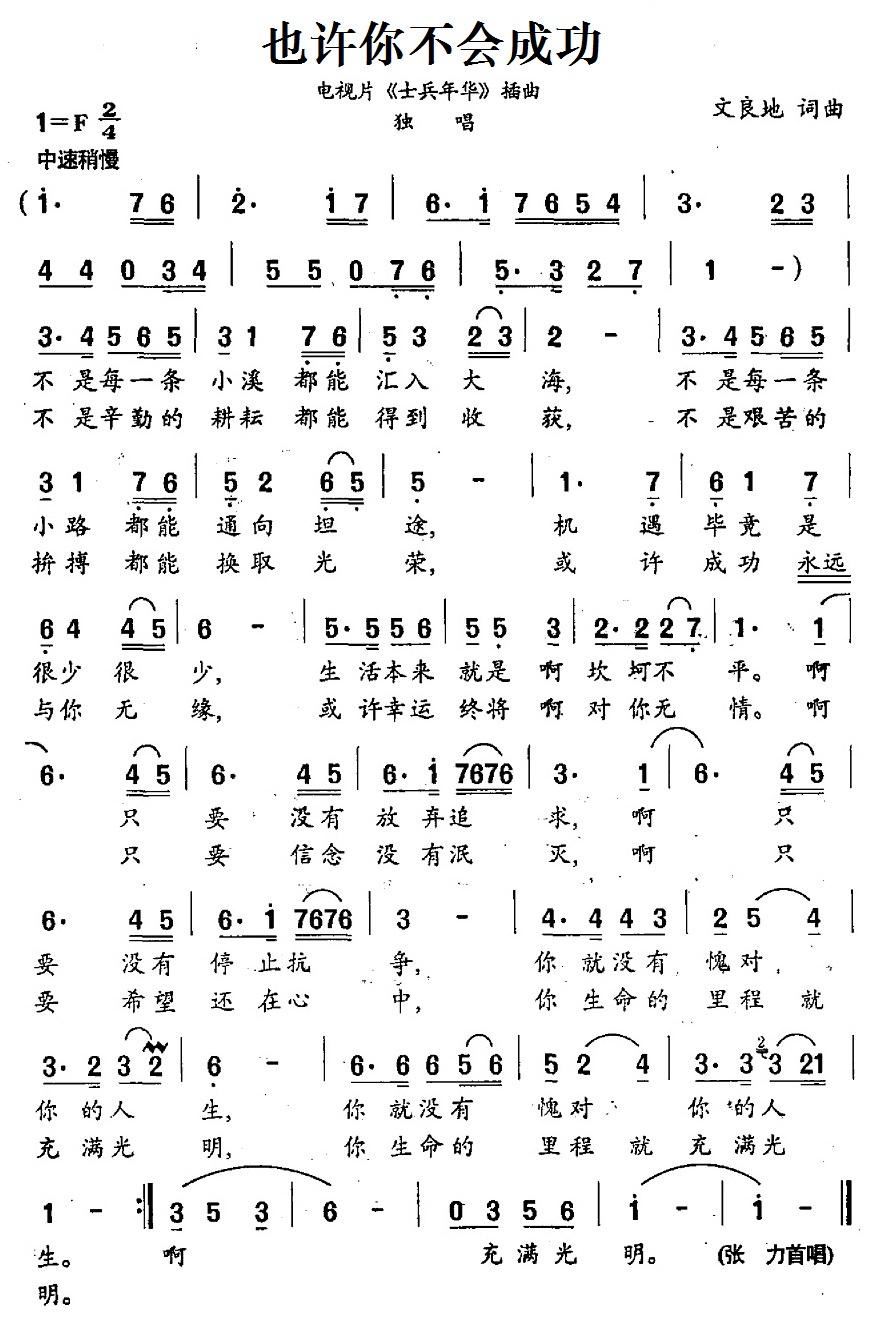 也许你不会成功
电视片《士兵年华》插曲
独 唱
文良地 词曲
1=F 2/4
中速稍慢
(1· 76 | 2· 17 | 6·1 7654 | 3· 23 |
44 034 | 55 076 | 5·3 27 | 1 -) |
3·4 565 | 31 76 | 53 23 | 2 - | 3·4 565 |
不是每一条 小溪 都能 汇入 大 海, 不是每一条
不是辛勤的 耕耘 都能 得到 收 获, 不是艰苦的
31 76 | 52 65 | 5 - | 1· 7 | 61 7 |
小路 都能 通向 坦 途, 机 遇 毕竟 是
拚搏 都能 换取 光 荣, 或 许 成功 永远
64 45 | 6 - | 5·5 56 | 55 3 | 2·2 27 | 1· 1 |
很少 很 少, 生活本来 就是 啊 坎坷不 平。 啊
与你 无 缘, 或许幸运 终将 啊 对你无 情。 啊
6· 45 | 6· 45 | 6·1 7676 | 3· 1 | 6· 45 |
只 要 没有 放弃追 求, 啊 只
只 要 信念 没有泯 灭, 啊 只
6· 45 | 6·1 7676 | 3 - | 4·4 43 | 25 4 |
要 没有 停止抗 争, 你就没有 愧对
要 希望 还在心 中, 你生命的 里程 就
3·2 32 | 6 - | 6·6 656 | 52 4 | 3·3 2 321 |
你的人 生, 你就没有 愧对 你的人
充满光 明, 你生命的 里程 就 充满光
1 - :| 35 3 | 6 - | 03 56 | 1 - | 1 - ||
生。 啊 充满光 明。 (张 力首唱)
明。